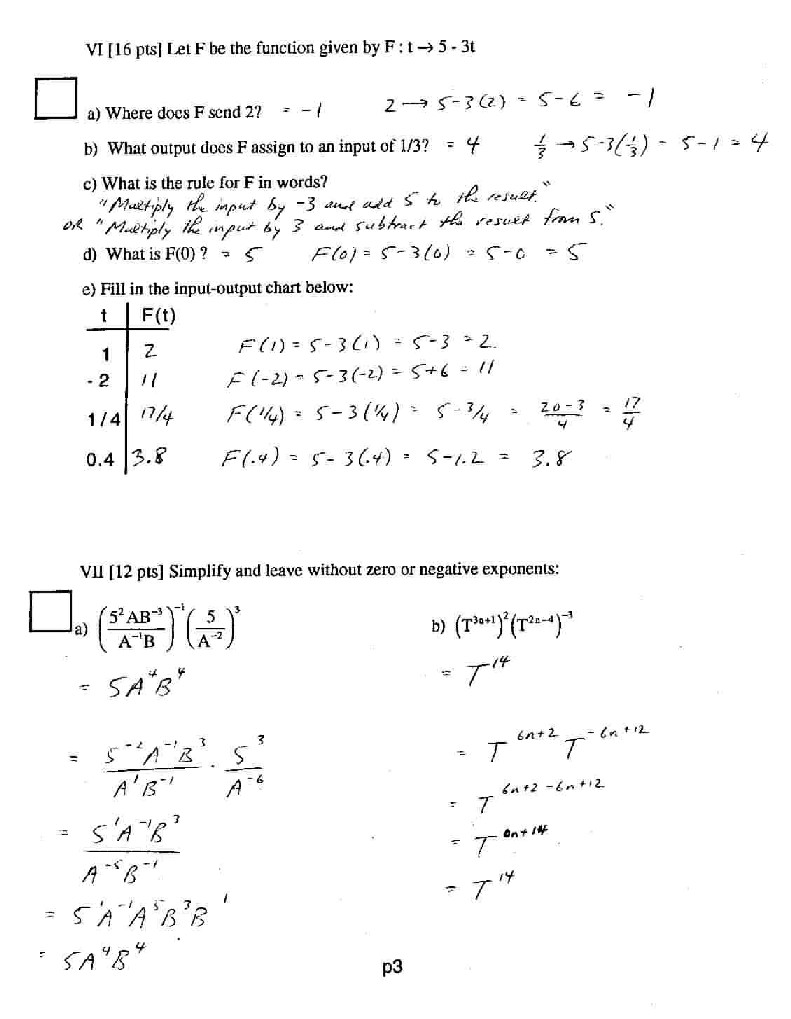 VI [16 pts] Let F be the function given by F : t → 5 - 3t
a) Where does F send 2? = -1 2 → 5-3(2) = 5-6 = -1
b) What output does F assign to an input of 1/3? = 4 1/3 → 5-3(1/3) = 5-1 = 4
c) What is the rule for F in words?
"Multiply the input by -3 and add 5 to the result."
OR "Multiply the input by 3 and subtract the result from 5."
d) What is F(0) ? = 5 F(0) = 5-3(0) = 5-0 = 5
e) Fill in the input-output chart below:
t F(t)
1 2 F(1) = 5-3(1) = 5-3 = 2
-2 11 F(-2) = 5-3(-2) = 5+6 = 11
1/4 17/4 F(1/4) = 5-3(1/4) = 5-3/4 = 20-3/4 = 17/4
0.4 3.8 F(.4) = 5-3(.4) = 5-1.2 = 3.8
VII [12 pts] Simplify and leave without zero or negative exponents:
a) (5²AB⁻³/A⁻¹B)⁻¹(5/A⁻²)³
= 5A⁴B⁴
= 5⁻²A⁻¹B³/A¹B⁻¹ · 5³/A⁻⁶
= 5¹A⁻¹B³/A⁻⁵B⁻¹
= 5¹A⁻¹A⁵B³B¹
= 5A⁴B⁴
b) (T³ⁿ⁺¹)²(T²ⁿ⁻⁴)⁻³
= T¹⁴
= T⁶ⁿ⁺² T⁻⁶ⁿ⁺¹²
= T⁶ⁿ⁺²⁻⁶ⁿ⁺¹²
= T⁰ⁿ⁺¹⁴
= T¹⁴
p3